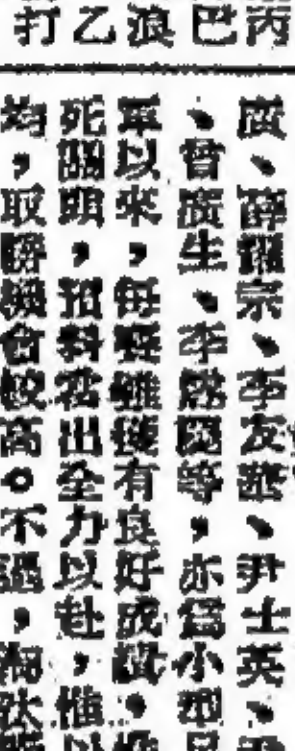 丙
巴
浪
乙
打
廣、薛耀宗、李友、尹士英、
、曾廣生、李等，亦為小型
軍以來，每賽雖僅有良好成績，
死關頭，預料花出全力以赴，惟
均，取勝機會較高。不過，